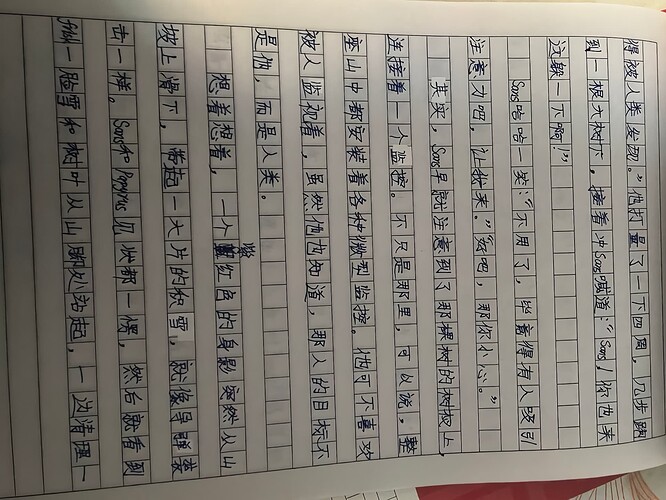 得被人类发现。”他打量了一下四周，几步跑
到一根大树下，接着冲Sans喊道：“Sans！你也来
这躲一下啊！”
Sans哈哈一笑：“不用了，毕竟得有人吸引
注意力吧，让我来。”“好吧，那你小心。”
其实，Sans早就注意到了那棵树的树根上，
连接着一个监控。不只是那里，可以说，整
座山中都安装着各种微型监控。他可不喜欢
被人监视着，虽然他也知道，那人的目标不
是他，而是人类。
想着想着，一个红色的身影突然从山
坡上滑下，带起一大片的积雪，就像导弹袭
击一样。Sans和Papyrus见状都一愣，然后就看到
一脸雪和树叶从山脚处站起，一边清理一